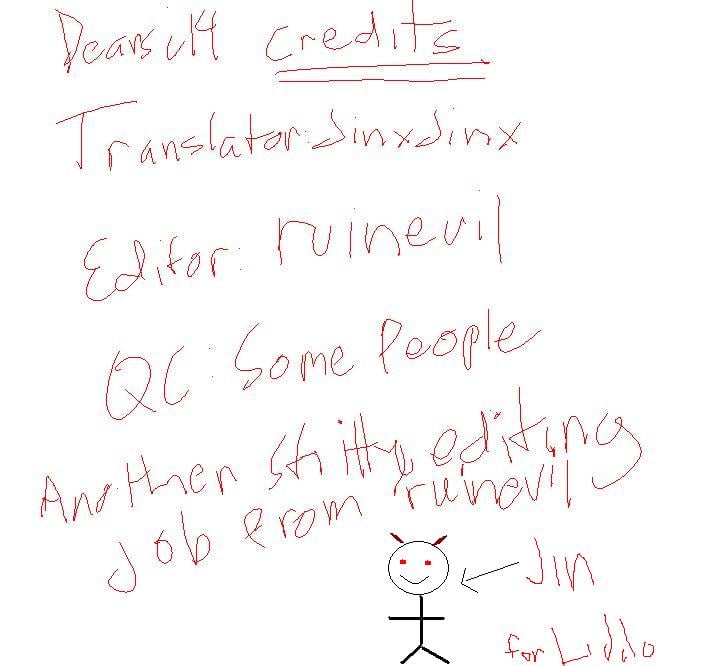 Dears v14 credits
Translator: JinxJinx
Editor: ruinevil
QC: Some People
Another shitty editing
job from ruinevil
Jin
for Liddo